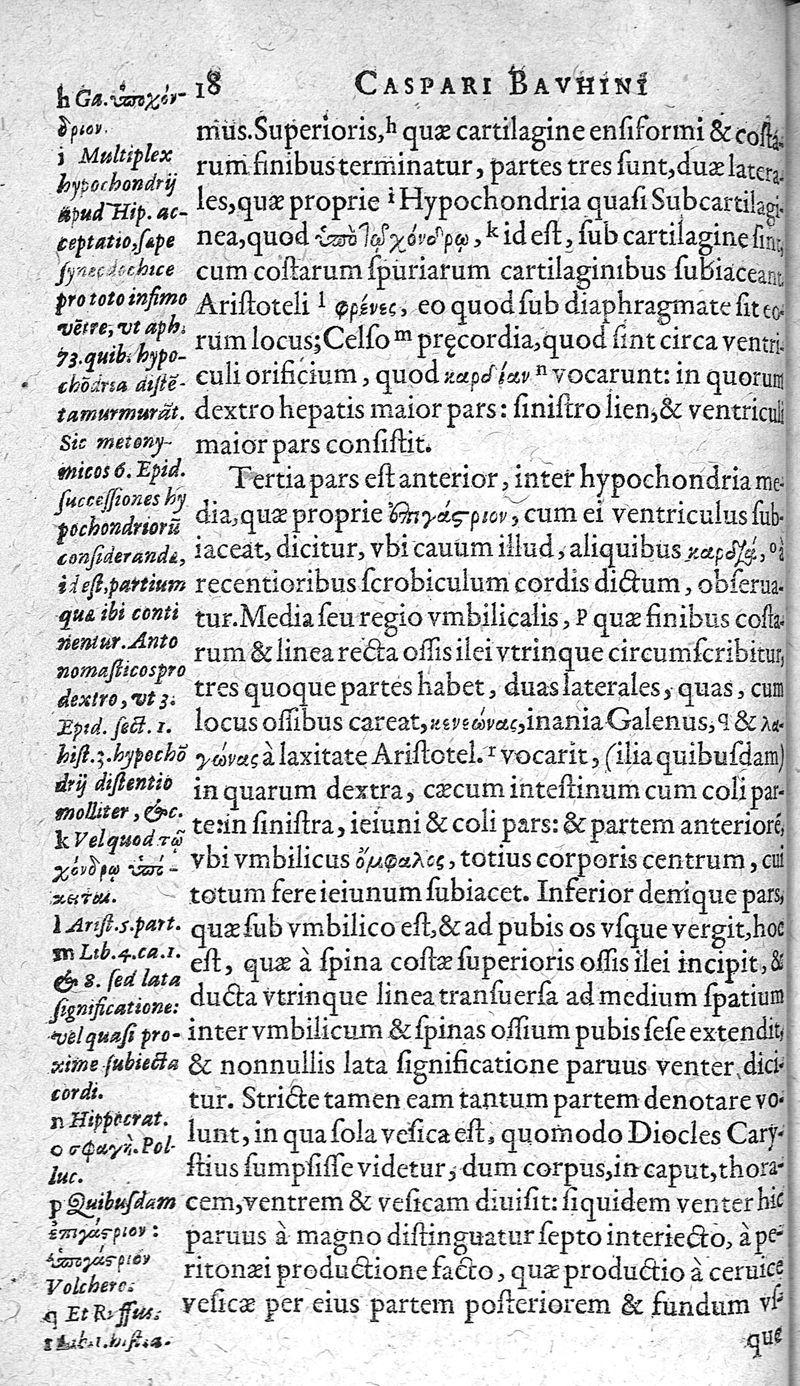 18 CASPARI BAVHINI
mus. Superioris, h quæ cartilagine ensiformi & costa-
rum finibus terminatur, partes tres sunt, duæ latera-
les, quæ proprie i Hypochondria quasi Subcartilagi-
nea, quod ὑπὸ τῷ χόνδρῳ, k id est, sub cartilagine sint,
cum costarum spuriarum cartilaginibus subiaceant,
Aristoteli l φρένες, eo quod sub diaphragmate sit eo-
rum locus; Celso m pręcordia, quod sint circa ventri-
culi orificium, quod καρδίαν n vocarunt: in quorum
dextro hepatis maior pars: sinistro lien, & ventriculi
maior pars consistit.
Tertia pars est anterior, inter hypochondria me-
dia, quæ proprie ἐπιγάστριον, cum ei ventriculus sub-
iaceat, dicitur, vbi cauum illud, aliquibus καρδία, o à
recentioribus scrobiculum cordis dictum, obserua-
tur. Media seu regio vmbilicalis, p quæ finibus costa-
rum & linea recta ossis ilei vtrinque circumscribitur,
tres quoque partes habet, duas laterales, quas, cum
locus ossibus careat, κενεώνας, inania Galenus, q & λα-
γώνας à laxitate Aristotel. r vocarit, (ilia quibusdam)
in quarum dextra, cæcum intestinum cum coli par-
te: in sinistra, ieiuni & coli pars: & partem anteriorē,
vbi vmbilicus ὄμφαλος, totius corporis centrum, cui
totum fere ieiunum subiacet. Inferior denique pars,
quæ sub vmbilico est, & ad pubis os vsque vergit, hoc
est, quæ à spina costæ superioris ossis ilei incipit, &
ducta vtrinque linea transuersa ad medium spatium
inter vmbilicum & spinas ossium pubis sese extendit,
& nonnullis lata significatione paruus venter dici-
tur. Stricte tamen eam tantum partem denotare vo-
lunt, in qua sola vesica est, quomodo Diocles Cary-
stius sumpsisse videtur, dum corpus, in caput, thora-
cem, ventrem & vesicam diuisit: siquidem venter hic
paruus à magno distinguatur septo interiecto, à pe-
ritonæi productione facto, quæ productio à ceruice
vesicæ per eius partem posteriorem & fundum vs-
que
h Ga. ὑποχόν-
δριον.
i Multiplex
hypochondrij
apud Hip. ac-
ceptatio, sæpe
synecdochice
pro toto infimo
vētre, vt aph.
73. quib. hypo-
chōdria distē-
ta murmurāt.
Sic metony-
micos 6. Epid.
successiones hy
pochondriorū
consideranda,
id est, partium
quæ ibi conti
nentur. Anto
nomasticos pro
dextro, vt 3.
Epid. sect. 1.
hist. 3. hypochō
drij distentio
molliter, &c.
k Vel quod τῷ
χόνδρῳ ὑπό-
κειται.
l Arist. 5. part.
m Lib. 4. ca. 1.
& 8. sed lata
significatione:
vel quasi pro-
xime subiecta
cordi.
n Hippocrat.
o σφαγὴ. Pol-
luc.
p Quibusdam
ἐπιγάστριον:
ὑπογάστριον
Volcher.
q Et Ruffus.
r Lib. 1. hist. a.